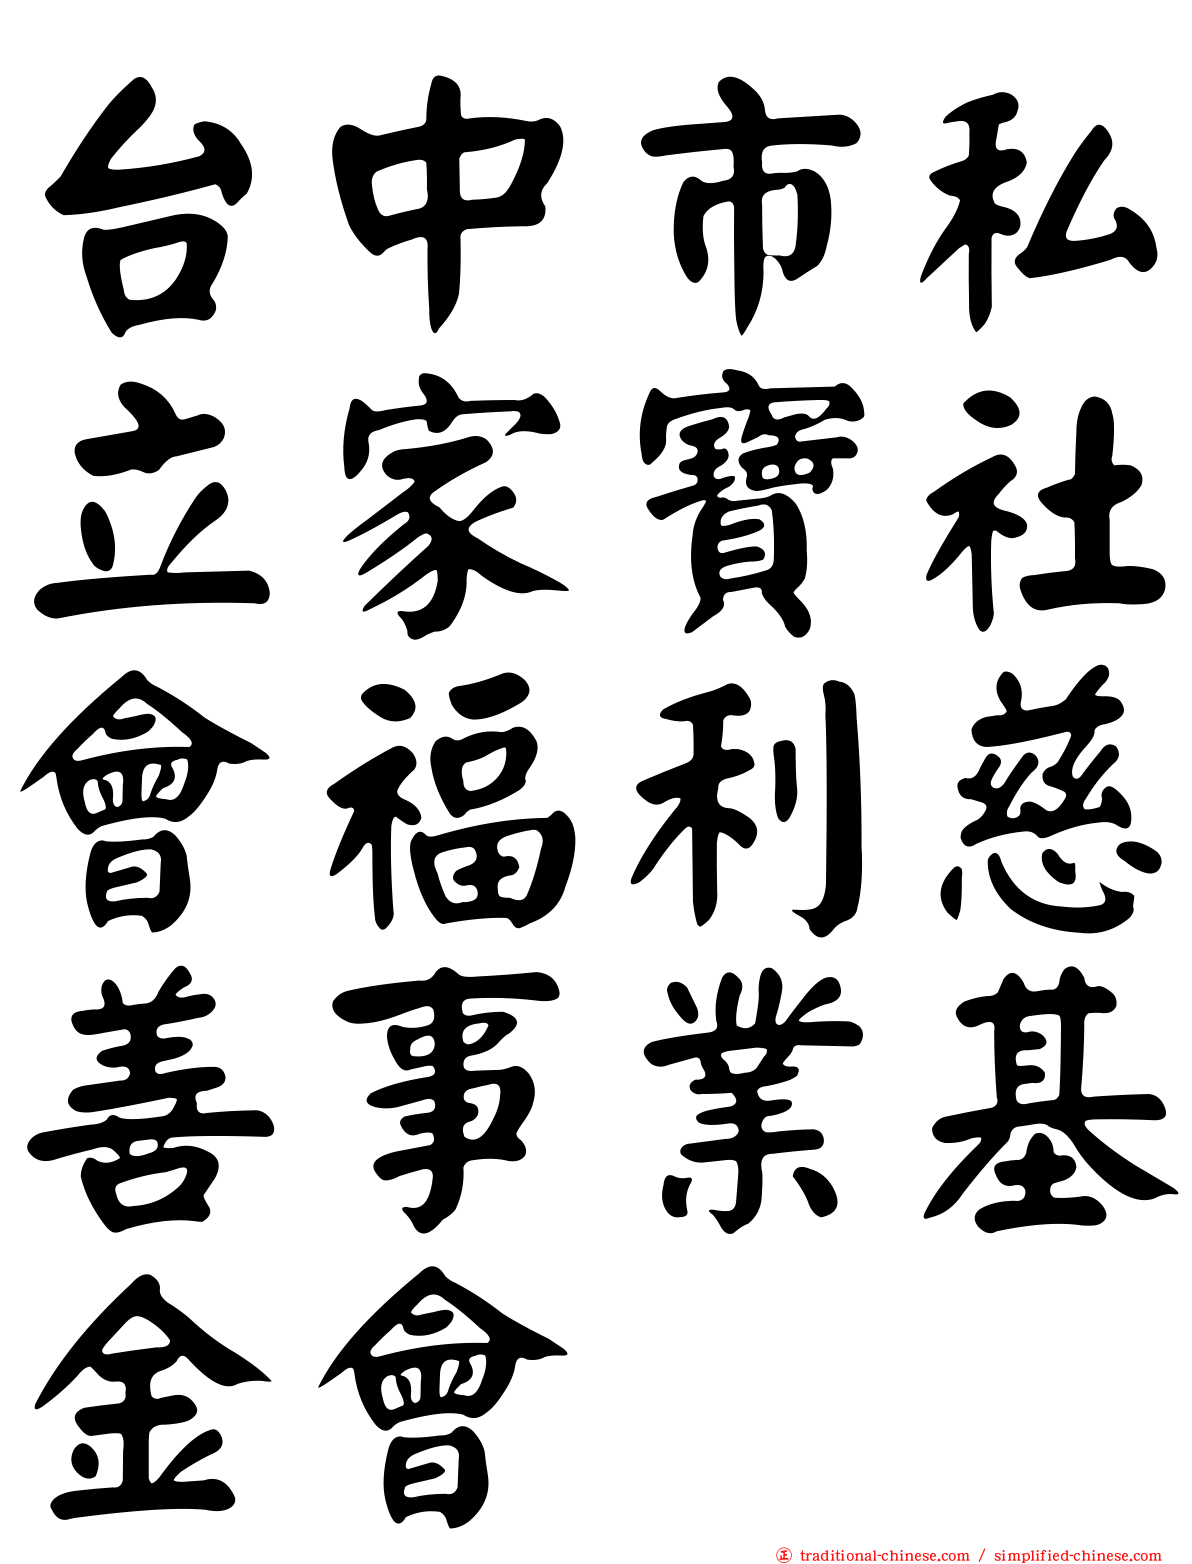 台中市私
立家寶社
會福利慈
善事業基
金會
㊣ traditional-chinese.com / simplified-chinese.com